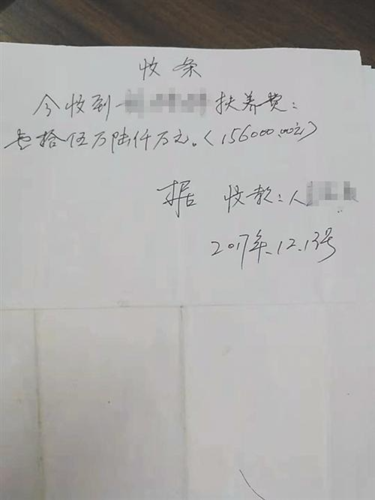 收条
今收到 扶养费:
壹拾伍万陆仟万元。(156000.00元)
据 收款:人
2017年.12.13号